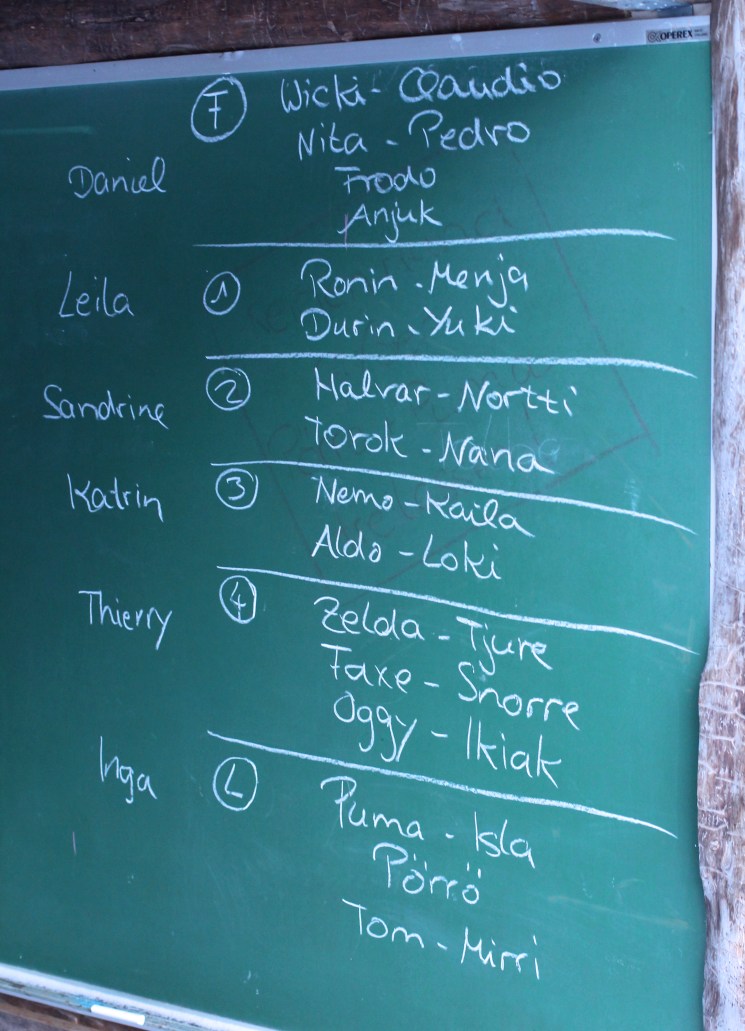 OPEREX
F Wicki - Claudio
Nita - Pedro
Daniel Frodo
Anjuk
Leila 1 Ronin - Menja
Durin - Yuki
Sandrine 2 Halvar - Nortti
Torok - Nana
Katrin 3 Nemo - Kaila
Aldo - Loki
Thierry 4 Zelda - Tjure
Faxe - Snorre
Oggy - Ikiak
Inga L Puma - Isla
Pörrö
Tom - Mirri